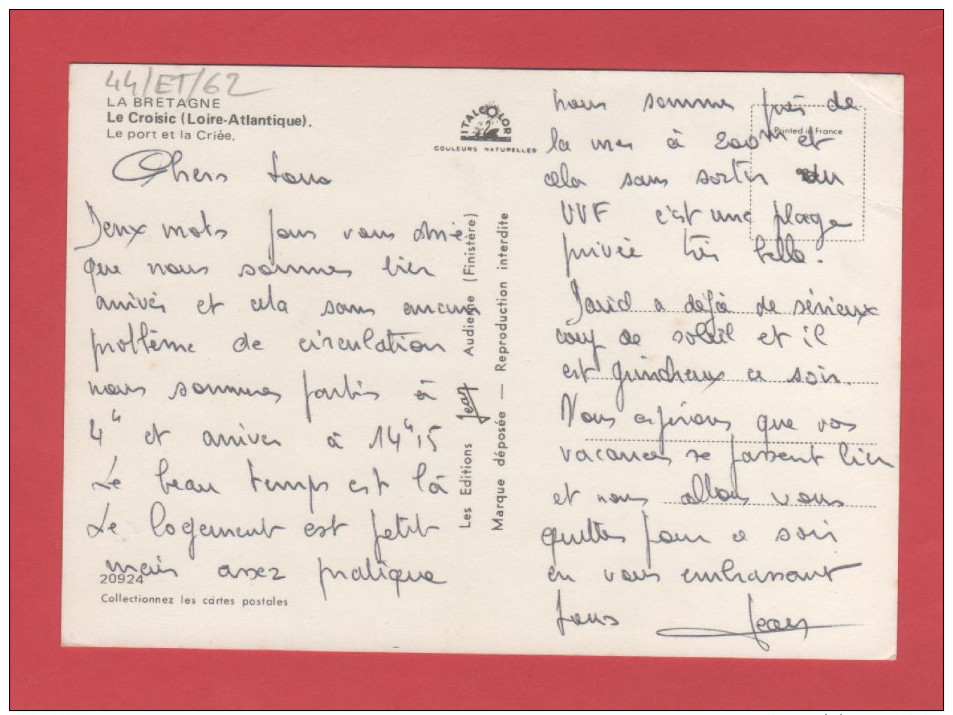 44/ET/62
LA BRETAGNE
Le Croisic (Loire-Atlantique).
Le port et la Criée.
ITALCOLOR
COULEURS NATURELLES
Printed in France
Chers tous
Deux mots pour vous dire
que nous sommes bien
arrivés et cela sans aucun
problème de circulation
nous sommes partis à
4h et arrives à 14h15
Le beau temps est là
Le logement est petit
mais assez pratique
20924
Collectionnez les cartes postales
Les Editions Jean Audierne (Finistère)
Marque déposée — Reproduction interdite
nous sommes près de
la mer à 200m et
cela sans sortir du
VVF c'est une plage
privée très belle.
David a déjà de sérieux
coup de soleil et il
est grincheux ce soir.
Nous espérons que vos
vacances se passent bien
et nous allons vous
quitter pour ce soir
en vous embrassant
tous Jean